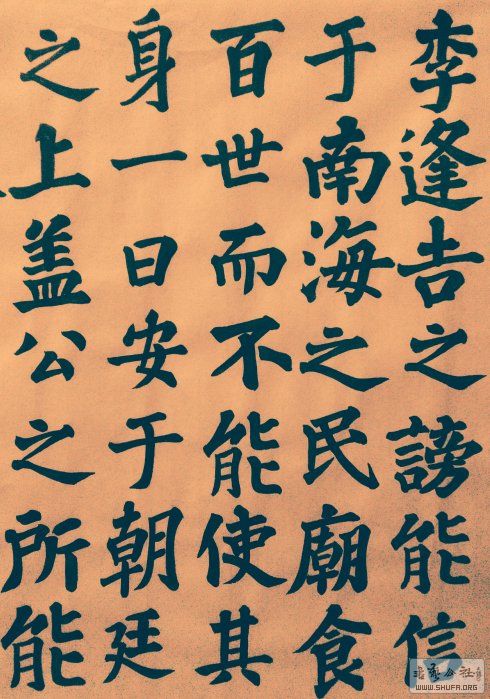 李逢吉之謗能信
于南海之民廟食
百世而不能使其
身一日安于朝廷
之上盖公之所能
WWW.SHUFA.ORG